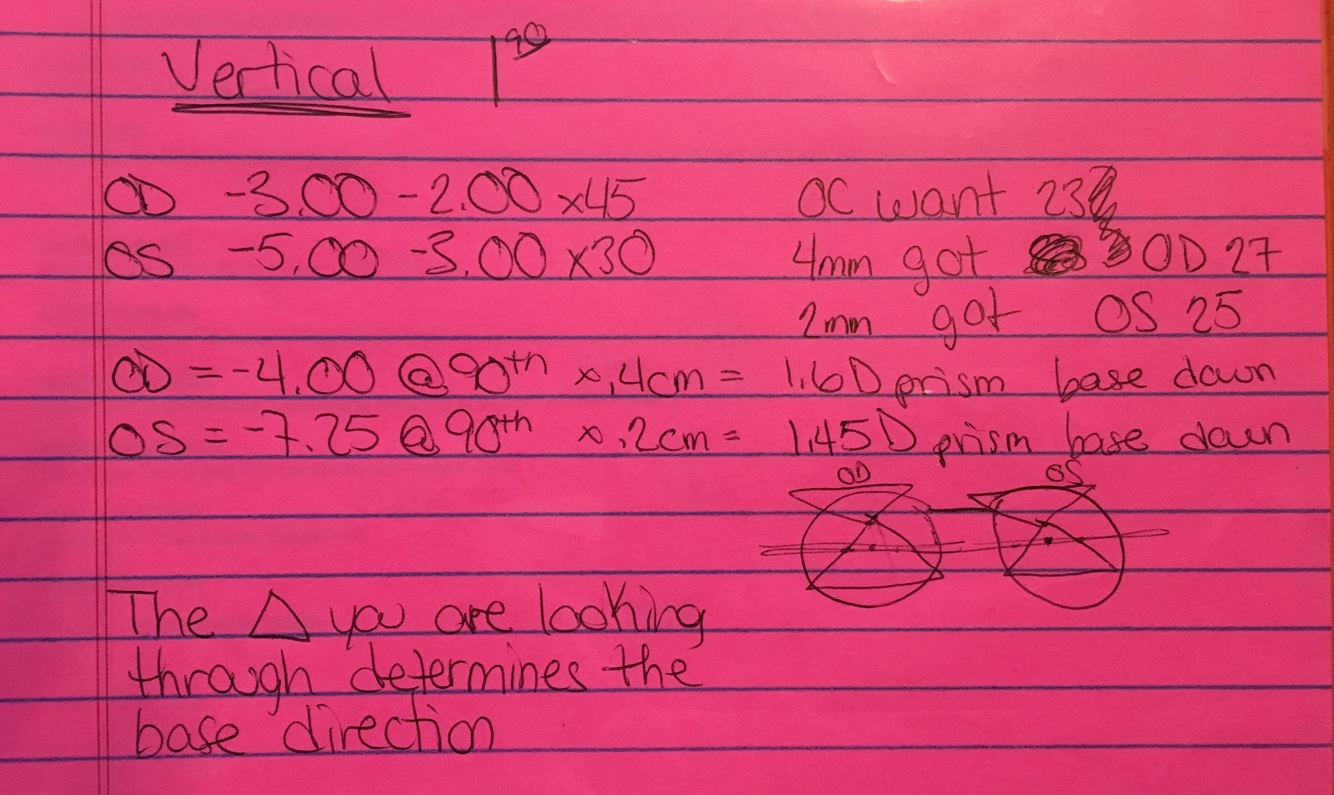 Vertical 90
OD -3.00 -2.00 x45 OC want 23
OS -5.00 -3.00 x30 4mm got OD 27
2mm got OS 25
OD = -4.00 @90th x.4cm = 1.6D prism base down
OS = -7.25 @90th x.2cm = 1.45D prism base down
OD OS
The △ you are looking
through determines the
base direction